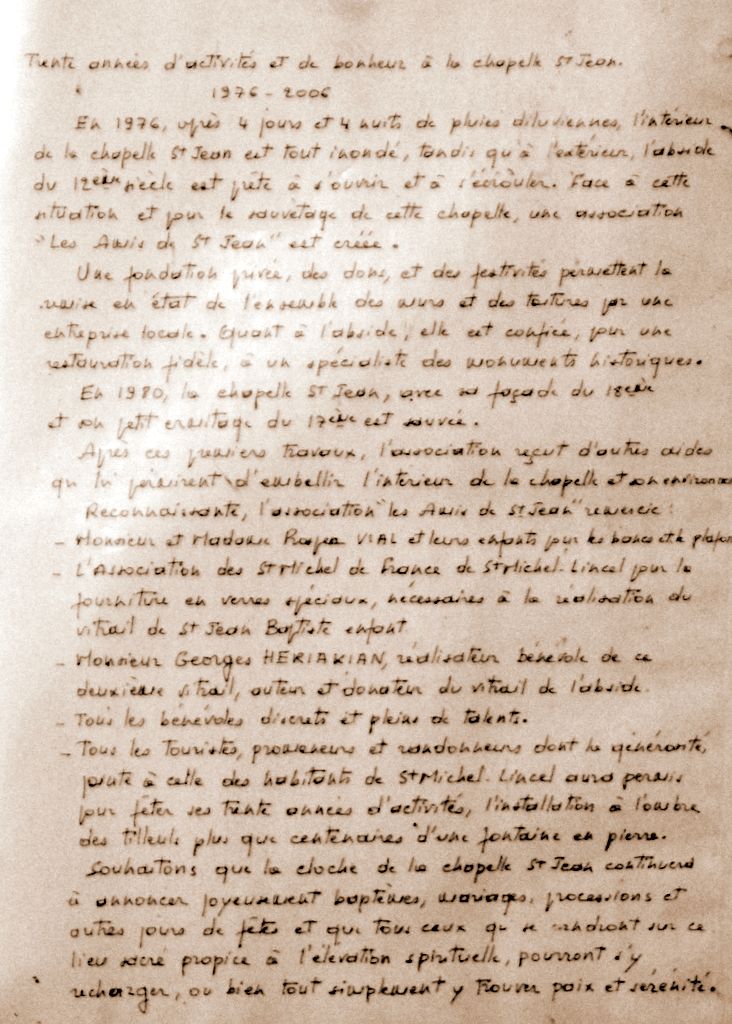 Trente années d'activités et de bonheur à la chapelle St Jean.
1976 - 2006
En 1976, après 4 jours et 4 nuits de pluies diluviennes, l'intérieur
de la chapelle St Jean est tout inondé, tandis qu'à l'extérieur, l'abside
du 12ème siècle est prête à s'ouvrir et à s'écrouler. Face à cette
situation et pour le sauvetage de cette chapelle, une association
"Les Amis de St Jean" est créée.
Une fondation privée, des dons, et des festivités permettent la
remise en état de l'ensemble des murs et des toitures par une
entreprise locale. Quant à l'abside, elle est confiée, pour une
restauration fidèle, à un spécialiste des monuments historiques.
En 1980, la chapelle St Jean, avec sa façade du 18ème
et son petit ermitage du 17ème est sauvée.
Après ces premiers travaux, l'association reçut d'autres aides
qui lui permirent d'embellir l'intérieur de la chapelle et son
Reconnaissante, l'association "les Amis de St Jean" remercie :
- Monsieur et Madame VIAL et leurs enfants pour les bancs et le
- L'Association des St Michel de France de St Michel-Lincel pour la
fourniture en verres spéciaux, nécessaires à la réalisation du
vitrail de St Jean Baptiste enfant.
- Monsieur Georges HERIAKIAN, réalisateur bénévole de ce
deuxième vitrail, auteur et donateur du vitrail de l'abside.
- Tous les bénévoles discrets et pleins de talents.
- Tous les touristes, promeneurs et randonneurs dont la générosité,
jointe à celle des habitants de St Michel-Lincel aura permis
pour fêter ses trente années d'activités, l'installation à l'ombre
des tilleuls plus que centenaires d'une fontaine en pierre.
Souhaitons que la cloche de la chapelle St Jean continuera
à annoncer joyeusement baptêmes, mariages, processions et
autres jours de fêtes et que tous ceux qui se rendront sur ce
lieu sacré propice à l'élévation spirituelle, pourront s'y
recharger, ou bien tout simplement y trouver paix et sérénité.